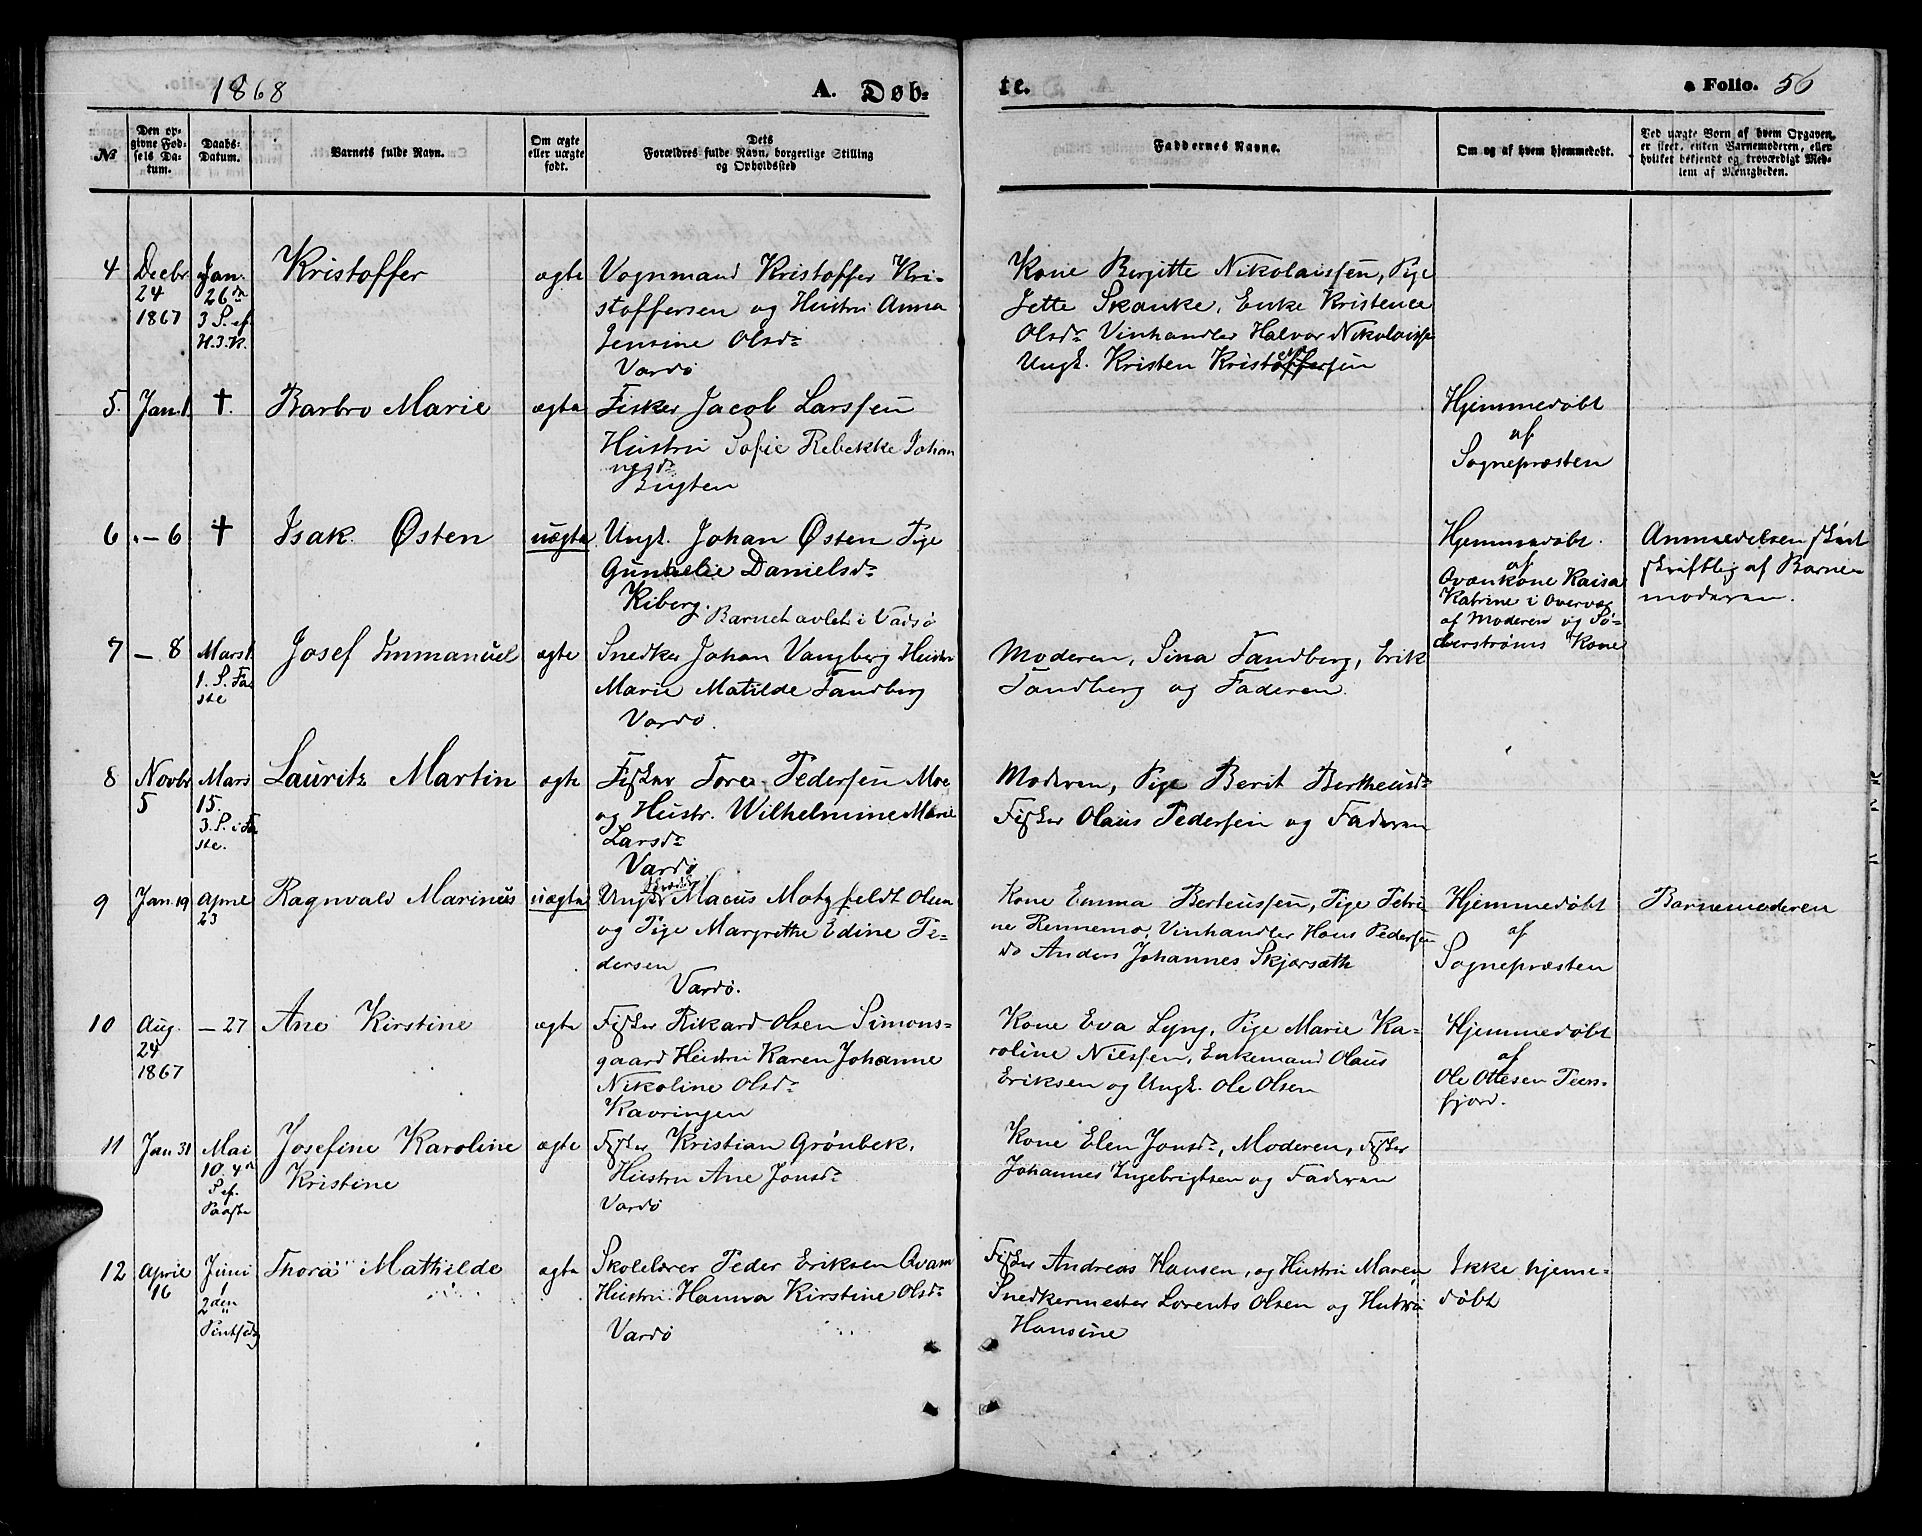 1868
A. Døb-
te.
a Folio. 56
№
Den op-
givne Fød-
sels Da-
tum.
Daabs-
Datum.
Barnets fulde Navn.
Om ægte
eller uægte
født.
Dets
Forældres fulde Navn, borgerlige Stilling
og Opholdssted
Faddernes Navne.
Om og af hvem hjemmedøbt.
Ved uægte Børn af hvem Opgaven
er skeet, enten Barnemoderen, eller
hvilket bekjendt og troværdigt Med-
lem af Menigheden.
4
Decbr
24
1867
Jan.
26de
3 S. ef.
H.3.K.
Kristoffer
ægte
Vognmand Kristoffer Kri-
stoffersen og Hustru Anna
Jensine Olsdr
Vardø
Kone Birgitte Nikolaissen, Pige
Jette Skanke, Enke Kristence
Olsdr Vinhandler Halvor Nikolaisse
Ungk. Kristen Kristoffersen
5.
Jan. 1.
†.
Barbro Marie
ægte
Fisker Jacob Larssen
Hustru Sofie Rebekke Johan
nesdr
Bugten
Hjemmedøbt
af
Sognepræsten
6
"– 6
†
Isak Østen
uægte
Ungk. Johan Østen Pige
Gunhelie Danielsdr
Kiberg. Barnet avlet i Vadsø
Hjemmedøbt.
af
Qvænkone Kaisa
Katrine i Overvær
af Moderen og Sø-
derstrøms Kone
Anmeldelsen skeet
skriftlig af Barne-
moderen.
7
– 8
Mars 1.
1. S. Fa
ste
Josef Immanuel
ægte
Snedker Johan Vangberg Hustru
Marie Matilde Tandberg
Vardø.
Moderen, Sina Tandberg, Erik
Tandberg og Faderen.
8
Novbr
5
Mars
15.
3. S. i Fa
ste.
Lauritz Martin
ægte
Fisker Tore Pedersen Moe
og Hustr. Wilhelmine Marie
Larsdr
Vardø
Moderen, Pige Berit Bertheusdr
Fisker Olaus Pedersen og Faderen
9
Jan. 19
April
23
Ragnvald Marinius
uægte
Ungk. Macus Motzfeldt Olsen
og Pige Margrethe Edine Pe-
dersen
Vardø.
Kone Emma Berteussen, Pige Petri-
ne Rennemo, Vinhandler Hans Pedersen
do Anders Johannes Skjærsæth
Hjemmedøbt
af
Sognepræsten
Barnemoderen
10
Aug.
24
1867
– 27
Ane Kirstine
ægte
Fisker Rikard Olsen Simons-
gaard Hustru Karen Johanne
Nikoline Olsdr
Kavringen
Kone Eva Lyng, Pige Marie Ka-
roline Nilssen, Enkemand Olaus
Eriksen og Ungk. Ole Olsen
Hjemmedøbt
af
Ole Ottesen Pers-
fjord.
11
Jan 31
Mai
10. 4de
S ef.
Paaske
Josefine Karoline
Kristine
ægte
Fisker Kristian Grønbek,
Hustru Ane Jonsdr
Vardø
Kone Elen Jonsdr, Moderen, Fisker
Johannes Ingebrigtsen og Faderen
12
April
16
Juni
1
2den
Pintsedag
Thora Mathilde
ægte
Skolelærer Peder Eriksen Qvam
Hustru Hanna Kirstine Olsdr
Vardø
Fisker Andreas Hansen, og Hustru Maren,
Snedkermester Lorents Olsen og Hustru
Hansine
Ikke hjemme-
døbt